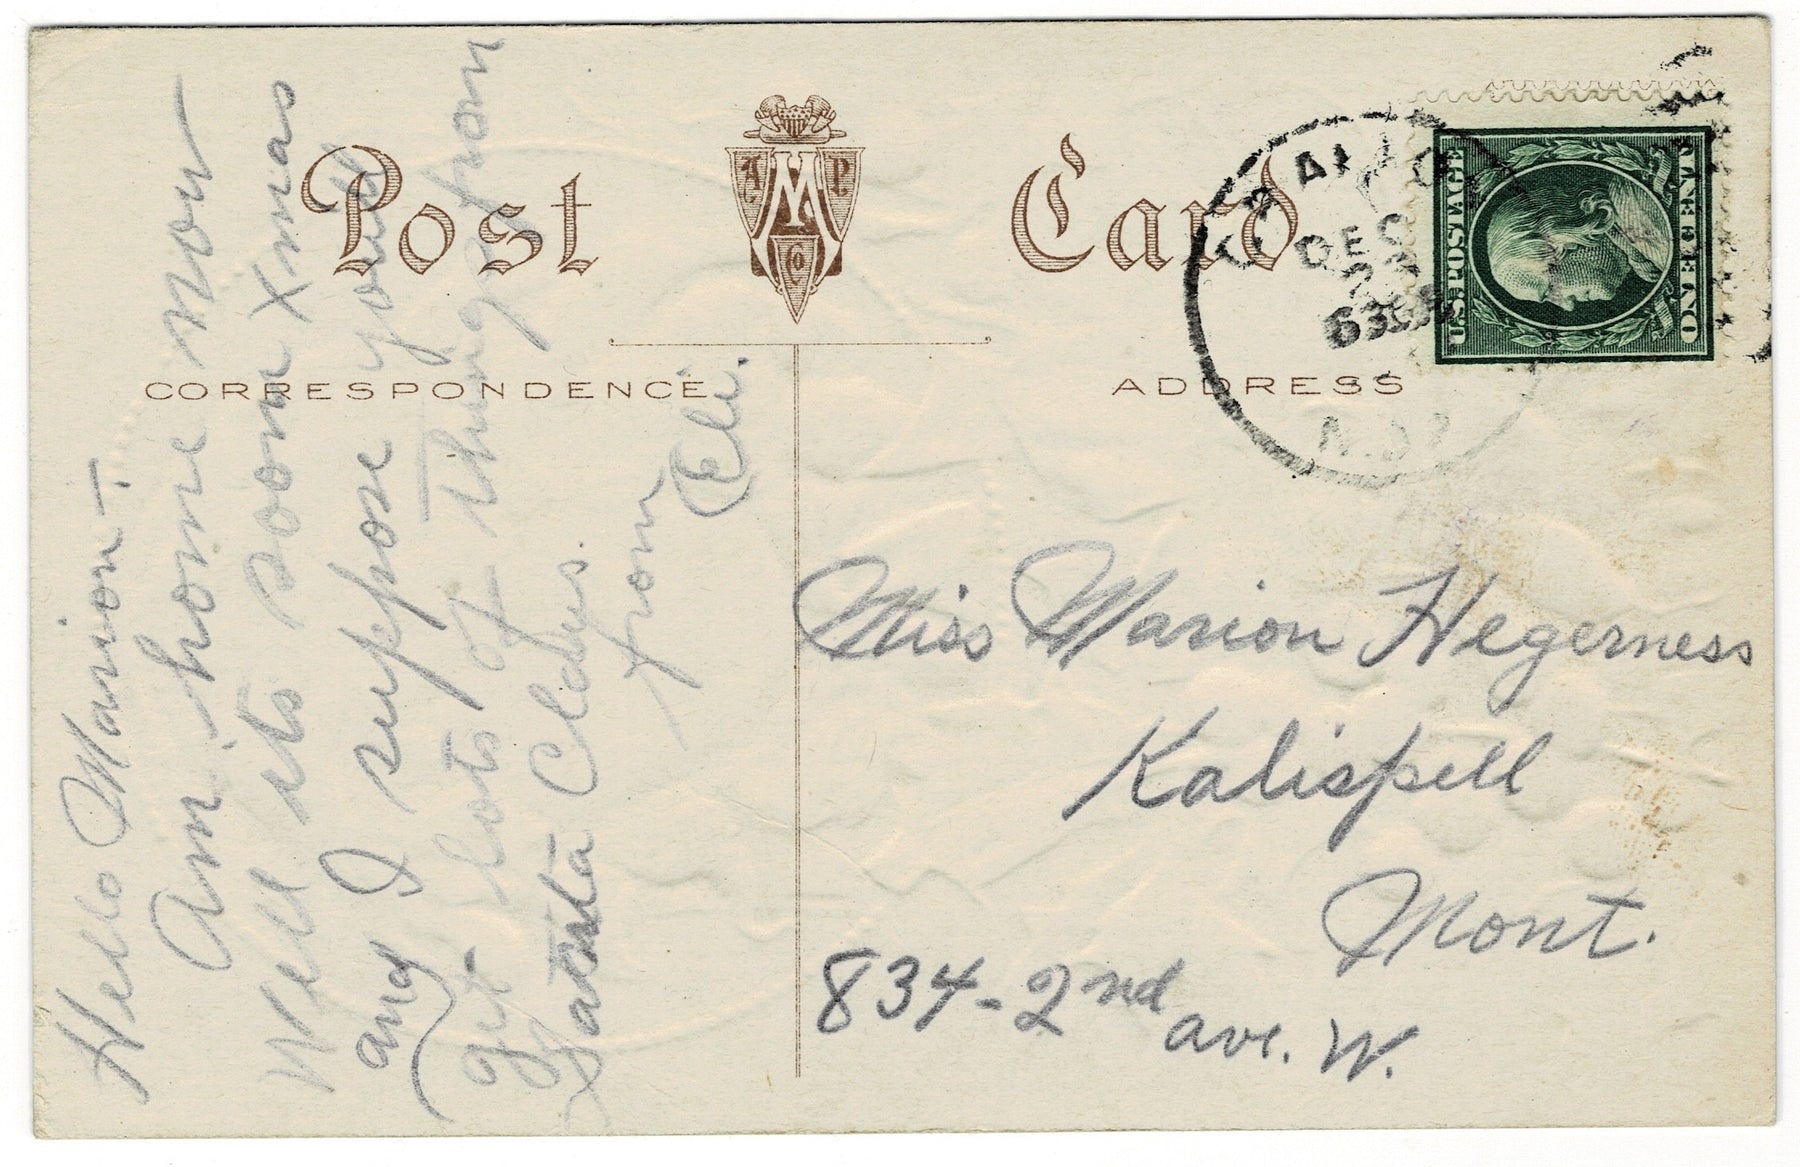 Post Card
A M P
Co
CORRESPONDENCE
ADDRESS
U.S. POSTAGE
ONE CENT
DEC
N.D.
Hello Marion -
Am home now
Well its soon Xmas
and I suppose youill
get lots of things from
Santa Claus.
from Eli.
Miss Marion Hegerness
Kalispell
Mont.
834 - 2nd ave. W.